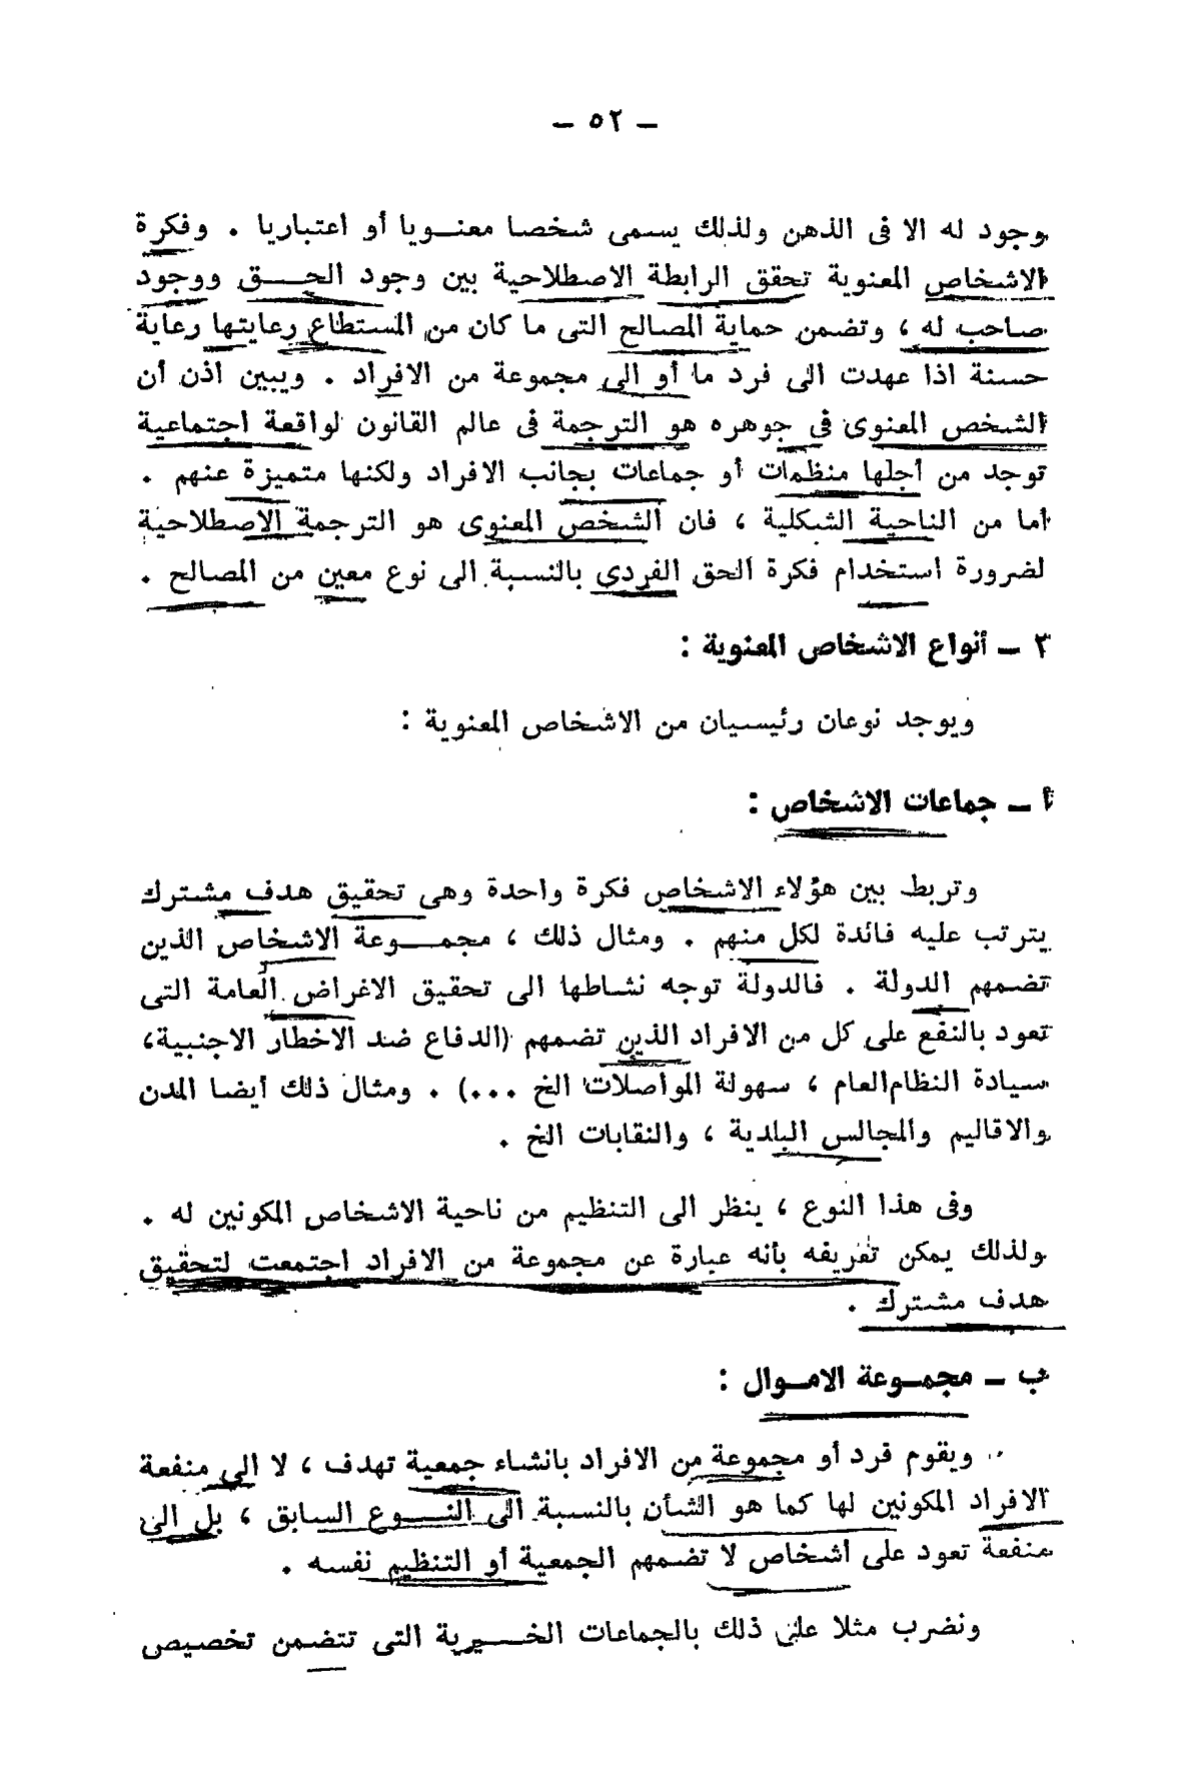 — ٥٢ —
وجود له الا فى الذهن ولذلك يسمى شخصا معنويا أو اعتباريا . وفكرة
الاشخاص المعنوية تحقق الرابطة الاصطلاحية بين وجود الحق ووجود
صاحب له ، وتضمن حماية المصالح التى ما كان من المستطاع رعايتها رعاية
حسنة اذا عهدت الى فرد ما أو الى مجموعة من الافراد . ويبين اذن أن
الشخص المعنوى فى جوهره هو الترجمة فى عالم القانون لواقعة اجتماعية
توجد من أجلها منظمات أو جماعات بجانب الافراد ولكنها متميزة عنهم .
أما من الناحية الشكلية ، فان الشخص المعنوى هو الترجمة الاصطلاحية
لضرورة استخدام فكرة الحق الفردى بالنسبة الى نوع معين من المصالح .
٣ — أنواع الاشخاص المعنوية :
ويوجد نوعان رئيسيان من الاشخاص المعنوية :
أ — جماعات الاشخاص :
وتربط بين هؤلاء الاشخاص فكرة واحدة وهى تحقيق هدف مشترك
يترتب عليه فائدة لكل منهم . ومثال ذلك ، مجموعة الاشخاص الذين
تضمهم الدولة . فالدولة توجه نشاطها الى تحقيق الاغراض العامة التى
تعود بالنفع على كل من الافراد الذين تضمهم (الدفاع ضد الاخطار الاجنبية،
سيادة النظام العام ، سهولة المواصلات الخ ...) . ومثال ذلك أيضا المدن
والاقاليم والمجالس البلدية ، والنقابات الخ .
وفى هذا النوع ، ينظر الى التنظيم من ناحية الاشخاص المكونين له .
ولذلك يمكن تعريفه بأنه عبارة عن مجموعة من الافراد اجتمعت لتحقيق
هدف مشترك .
ب — مجموعة الاموال :
ويقوم فرد أو مجموعة من الافراد بانشاء جمعية تهدف ، لا الى منفعة
الافراد المكونين لها كما هو الشأن بالنسبة الى النوع السابق ، بل الى
منفعة تعود على أشخاص لا تضمهم الجمعية أو التنظيم نفسه .
ونضرب مثلا على ذلك بالجماعات الخيرية التى تتضمن تخصيص